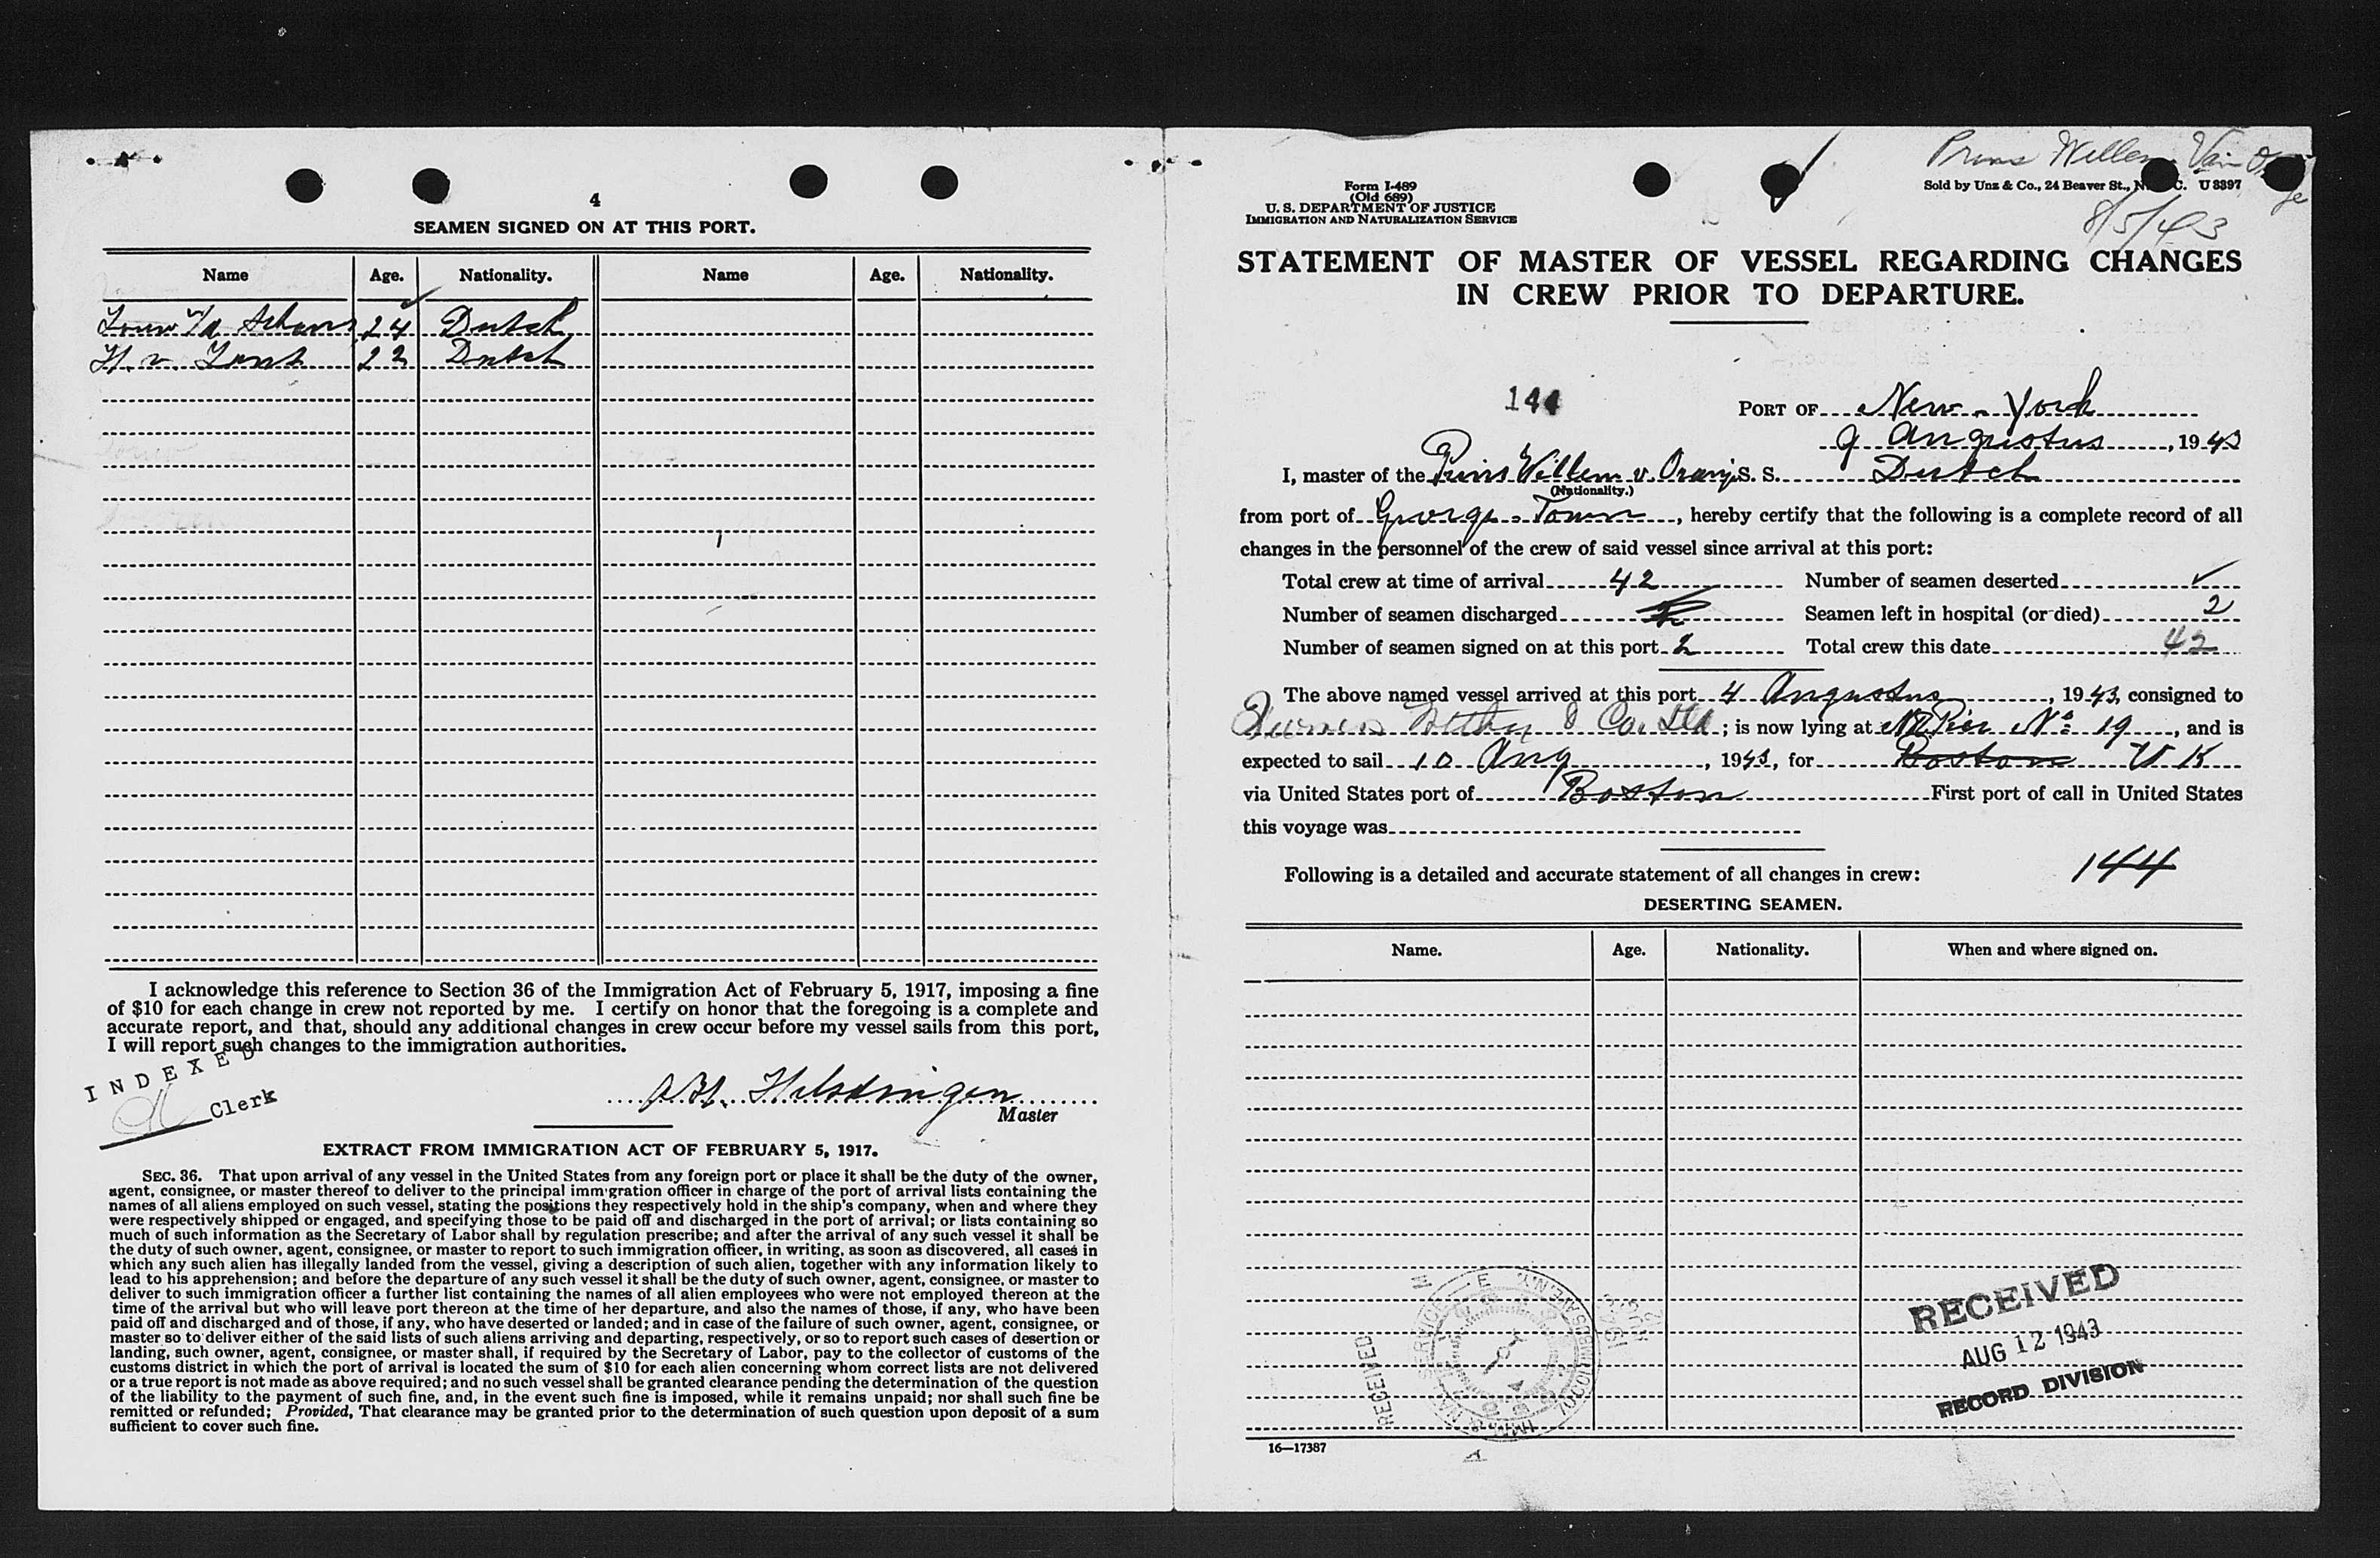 4
SEAMEN SIGNED ON AT THIS PORT.
Name Age. Nationality. Name Age. Nationality.
24 Dutch
H. v. 22 Dutch
I acknowledge this reference to Section 36 of the Immigration Act of February 5, 1917, imposing a fine
of $10 for each change in crew not reported by me. I certify on honor that the foregoing is a complete and
accurate report, and that, should any additional changes in crew occur before my vessel sails from this port,
I will report such changes to the immigration authorities.
INDEXED
Clerk
Master
EXTRACT FROM IMMIGRATION ACT OF FEBRUARY 5, 1917.
SEC. 36. That upon arrival of any vessel in the United States from any foreign port or place it shall be the duty of the owner,
agent, consignee, or master thereof to deliver to the principal imm'gration officer in charge of the port of arrival lists containing the
names of all aliens employed on such vessel, stating the positions they respectively hold in the ship's company, when and where they
were respectively shipped or engaged, and specifying those to be paid off and discharged in the port of arrival; or lists containing so
much of such information as the Secretary of Labor shall by regulation prescribe; and after the arrival of any such vessel it shall be
the duty of such owner, agent, consignee, or master to report to such immigration officer, in writing, as soon as discovered, all cases in
which any such alien has illegally landed from the vessel, giving a description of such alien, together with any information likely to
lead to his apprehension; and before the departure of any such vessel it shall be the duty of such owner, agent, consignee, or master to
deliver to such immigration officer a further list containing the names of all alien employees who were not employed thereon at the
time of the arrival but who will leave port thereon at the time of her departure, and also the names of those, if any, who have been
paid off and discharged and of those, if any, who have deserted or landed; and in case of the failure of such owner, agent, consignee, or
master so to deliver either of the said lists of such aliens arriving and departing, respectively, or so to report such cases of desertion or
landing, such owner, agent, consignee, or master shall, if required by the Secretary of Labor, pay to the collector of customs of the
customs district in which the port of arrival is located the sum of $10 for each alien concerning whom correct lists are not delivered
or a true report is not made as above required; and no such vessel shall be granted clearance pending the determination of the question
of the liability to the payment of such fine, and, in the event such fine is imposed, while it remains unpaid; nor shall such fine be
remitted or refunded; Provided, That clearance may be granted prior to the determination of such question upon deposit of a sum
sufficient to cover such fine.
Prins Willem Van
Form I-489
(Old 689)
U. S. DEPARTMENT OF JUSTICE
IMMIGRATION AND NATURALIZATION SERVICE
Sold by Unz & Co., 24 Beaver St., N. C. U 3397
8/5/43
STATEMENT OF MASTER OF VESSEL REGARDING CHANGES
IN CREW PRIOR TO DEPARTURE.
144
PORT OF New-York
9 Augustus, 1943
I, master of the Prins Willem v. Oranje S. S. Dutch
(Nationality.)
from port of George-Town, hereby certify that the following is a complete record of all
changes in the personnel of the crew of said vessel since arrival at this port:
Total crew at time of arrival 42 Number of seamen deserted ✓
Number of seamen discharged Seamen left in hospital (or died) 2
Number of seamen signed on at this port 2 Total crew this date 42
The above named vessel arrived at this port 4 Augustus, 1943, consigned to
Furness Withy & Co. Ltd; is now lying at NR Pier No 19, and is
expected to sail 10 Aug, 1943, for Boston U K
via United States port of Boston First port of call in United States
this voyage was
Following is a detailed and accurate statement of all changes in crew: 144
DESERTING SEAMEN.
Name. Age. Nationality. When and where signed on.
RECEIVED
RECEIVED
AUG 12 1943
RECORD DIVISION
16—17387